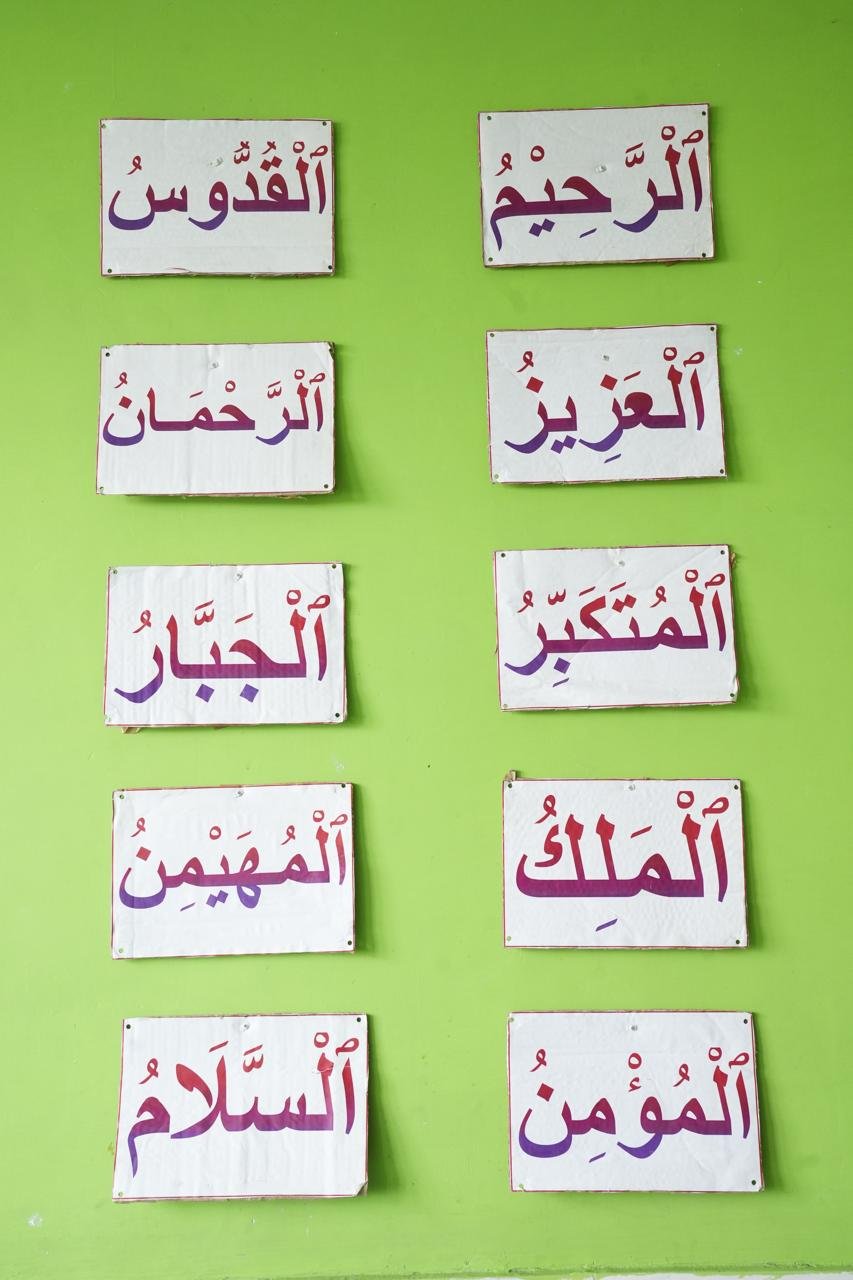 ٱلْرَّحِيْمُ
ٱلْقُدُّوسُ
ٱلْعَزِيزُ
ٱلْرَّحْمَـانُ
ٱلْمُتَكَبِّرُ
ٱلْجَبَّارُ
ٱلْمَلِكُ
ٱلْمُهَيْمِنُ
ٱلْمُؤْمِنُ
ٱلْسَّلَامُ